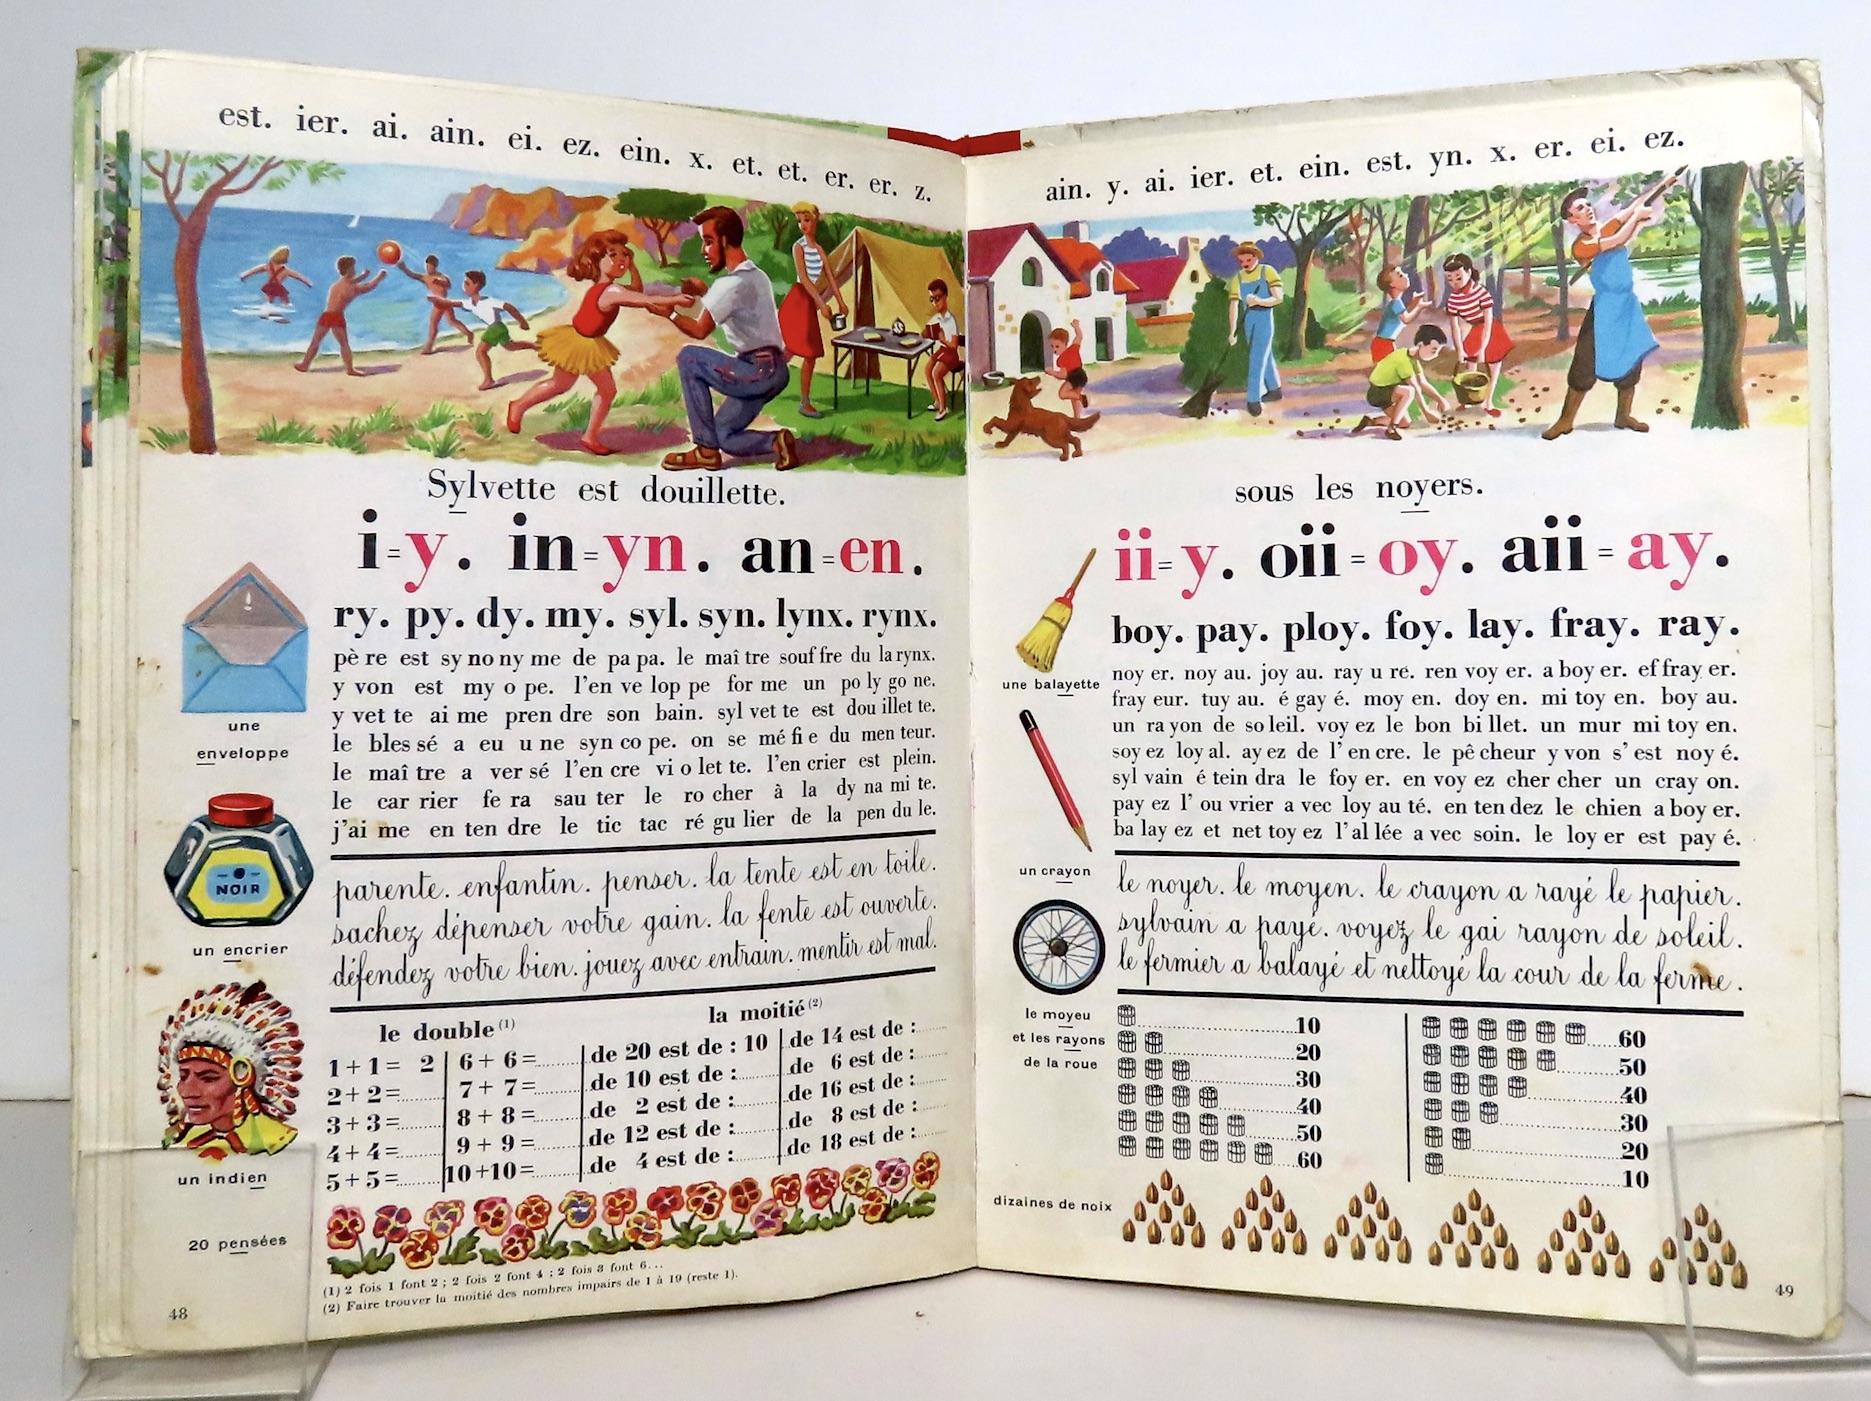 est. ier. ai. ain. ei. ez. ein. x. et. et. er. er. z.
Sylvette est douillette.
i=y. in=yn. an=en.
ry. py. dy. my. syl. syn. lynx. rynx.
pè re est sy no ny me de pa pa. le maî tre souf fre du la rynx.
y von est my o pe. l'en ve lop pe for me un po ly go ne.
y vet te ai me pren dre son bain. syl vet te est dou illet te.
le bles sé a eu u ne syn co pe. on se mé fi e du men teur.
le maî tre a ver sé l'en cre vi o let te. l'en crier est plein.
le car rier fe ra sau ter le ro cher à la dy na mi te.
j'ai me en ten dre le tic tac ré gu lier de la pen du le.
parente. enfantin. penser. la tente est en toile.
sachez dépenser votre gain. la fente est ouverte.
défendez votre bien. jouez avec entrain. mentir est mal.
une
enveloppe
NOIR
un encrier
un indien
20 pensées
le double (1)
la moitié (2)
1+1= 2 6+6= de 20 est de : 10 de 14 est de :
2+2= 7+7= de 10 est de : de 6 est de :
3+3= 8+8= de 2 est de : de 16 est de :
4+4= 9+9= de 12 est de : de 8 est de :
5+5= 10+10= de 4 est de : de 18 est de :
(1) 2 fois 1 font 2 ; 2 fois 2 font 4 ; 2 fois 3 font 6...
(2) Faire trouver la moitié des nombres impairs de 1 à 19 (reste 1).
48
ain. y. ai. ier. et. ein. est. yn. x. er. ei. ez.
sous les noyers.
ii=y. oii=oy. aii=ay.
boy. pay. ploy. foy. lay. fray. ray.
noy er. noy au. joy au. ray u re. ren voy er. a boy er. ef fray er.
fray eur. tuy au. é gay é. moy en. doy en. mi toy en. boy au.
un ra yon de so leil. voy ez le bon bi llet. un mur mi toy en.
soy ez loy al. ay ez de l'en cre. le pê cheur y von s'est noy é.
syl vain é tein dra le foy er. en voy ez cher cher un cray on.
pay ez l'ou vrier a vec loy au té. en ten dez le chien a boy er.
ba lay ez et net toy ez l'al lée a vec soin. le loy er est pay é.
le noyer. le moyen. le crayon a rayé le papier.
sylvain a payé. voyez le gai rayon de soleil.
le fermier a balayé et nettoyé la cour de la ferme.
une balayette
un crayon
le moyeu
et les rayons
de la roue
10 60
20 50
30 40
40 30
50 20
60 10
dizaines de noix
49